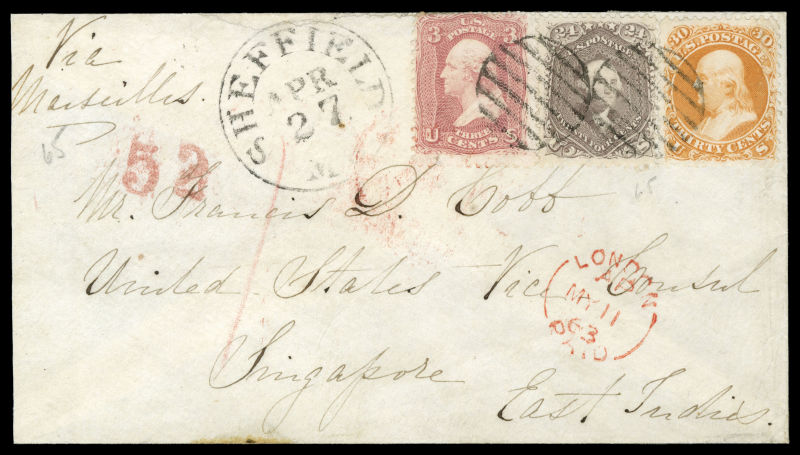 Via
Marseilles.
SHEFFIELD
APR
27
M
3 3
U.S.
POSTAGE
THREE
CENTS
U S
24 24
U.S. POSTAGE
U S
30 30
U.S. POSTAGE
THIRTY CENTS
U S
65
52
65
Mr. Francis D. Cobb
United States Vice Consul
Singapore
East Indies.
LONDON
MY 11
63
PAID